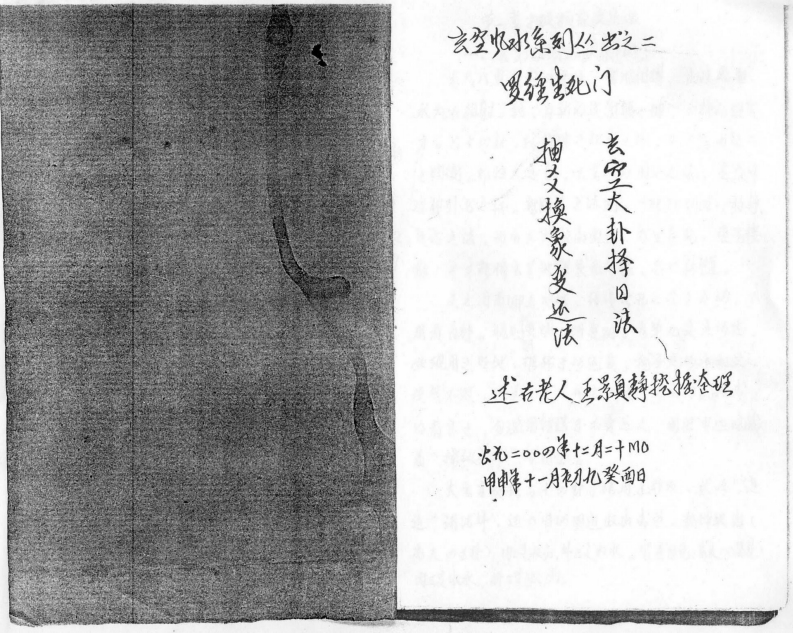 玄空风水系列丛书之二
罗经生死门
玄空大卦择日法
抽爻换象变运法
述古老人王景颢静挖掘整理
公元二000四年十二月二十日
甲申年十一月初九癸酉日